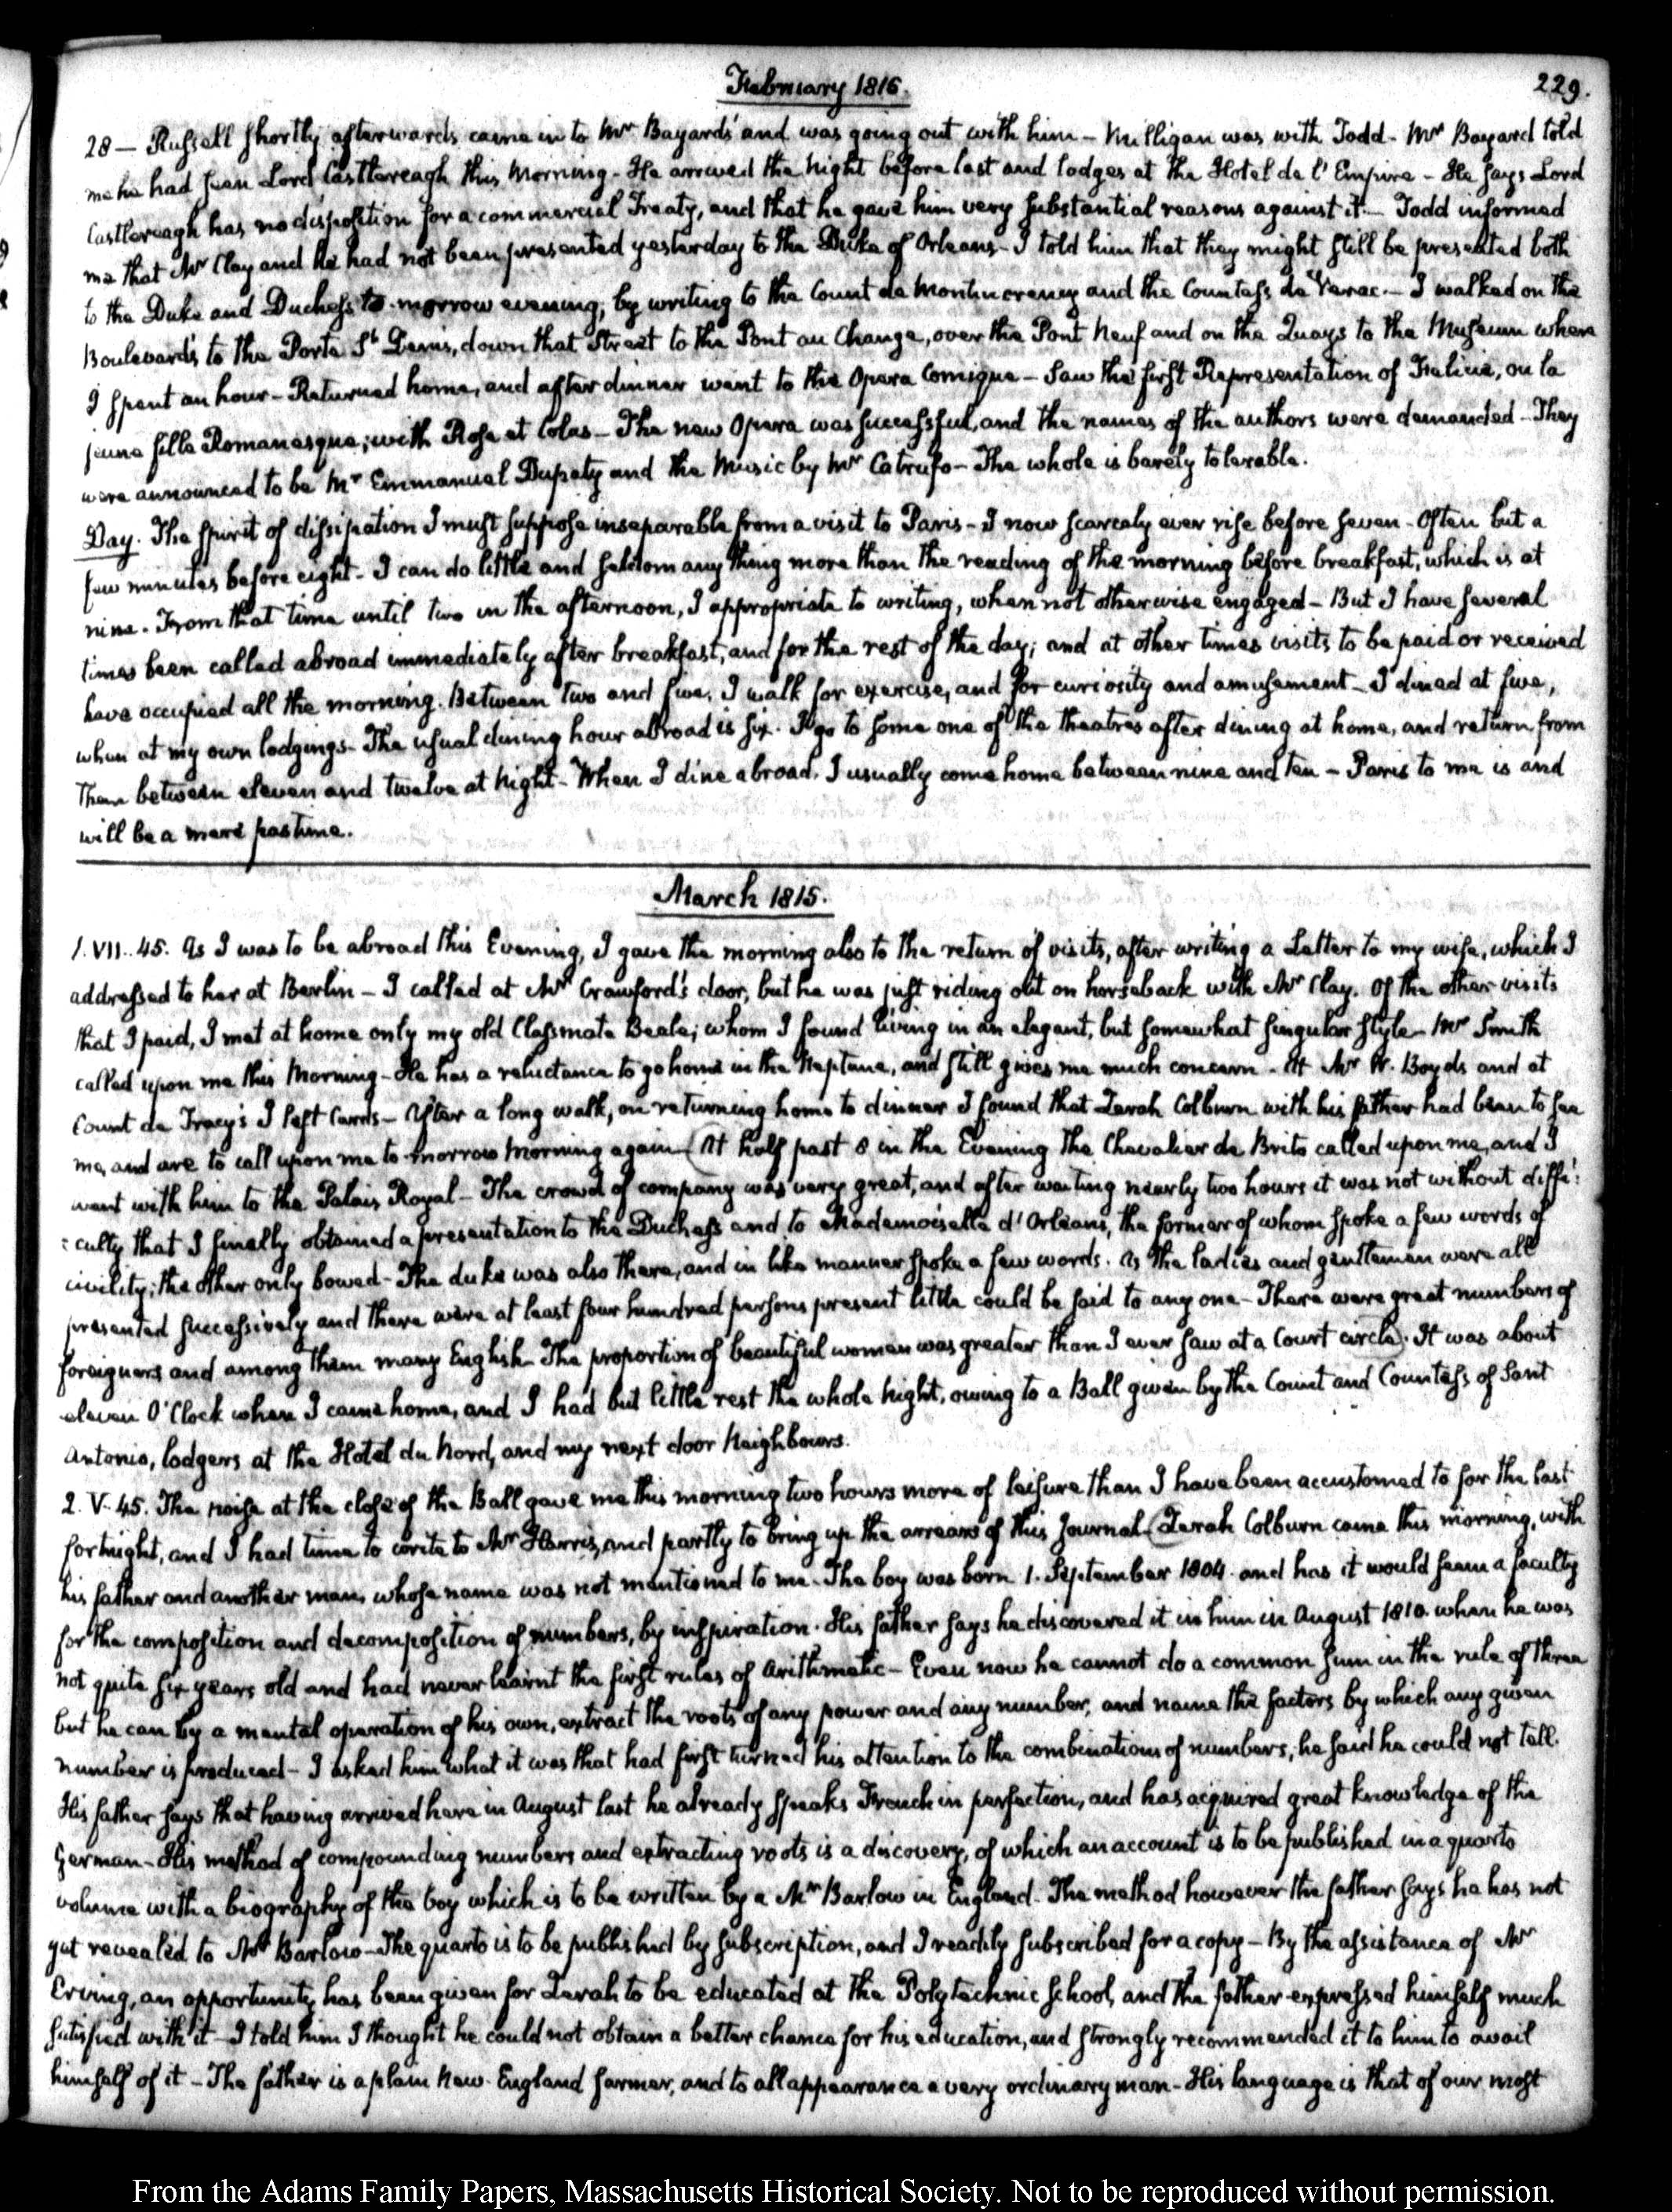 February 1816.
229.
28 — Russell shortly afterwards came in to Mr. Bayards' and was going out with him – Milligan was with Todd – Mr. Bayard told
me he had seen Lord Castlereagh this Morning – He arrived the Night before last and lodges at the Hotel de l'Empire – He says Lord
Castlereagh has no disposition for a commercial Treaty, and that he gave him very substantial reasons against it — Todd informed
me that Mr. Clay and he had not been presented yesterday to the Duke of Orleans – I told him that they might still be presented both
to the Duke and Duchess to-morrow evening, by writing to the Count de Montmorency and the Countess de Verac. — I walked on the
Boulevards to the Porte St. Denis, down that Street to the Pont au Change, over the Pont Neuf and on the Quays to the Museum where
I spent an hour – Returned home, and after dinner went to the Opera Comique – Saw the first Representation of Felicie, ou la
jeune fille Romanesque; with Rose et Colas – The new Opera was successful, and the names of the authors were demanded – They
were announced to be Mr. Emmanuel Dupaty and the Music by Mr. Catrufo – The whole is barely tolerable.
Day. The spirit of dissipation I must suppose inseparable from a visit to Paris – I now scarcely ever rise before seven – Often but a
few minutes before eight – I can do little and seldom any thing more than the reading of the morning before breakfast, which is at
nine. From that time until two in the afternoon, I appropriate to writing, when not otherwise engaged – But I have several
times been called abroad immediately after breakfast, and for the rest of the day; and at other times visits to be paid or received
have occupied all the morning. Between two and five, I walk for exercise, and for curiosity and amusement – I dined at five,
when at my own lodgings – The usual dining hour abroad is six. I go to some one of the theatres after dining at home, and return from
them between eleven and twelve at Night – When I dine abroad, I usually come home between nine and ten – Paris to me is and
will be a mere pastime.
March 1815.
1. VII. 45. As I was to be abroad this Evening, I gave the morning also to the return of visits, after writing a Letter to my wife, which I
addressed to her at Berlin – I called at Mr. Crawford's door, but he was just riding out on horseback with Mr. Clay. Of the other visits
that I paid, I met at home only my old Classmate Beale; whom I found living in an elegant, but somewhat singular style – Mr. Smith
called upon me this Morning – He has a reluctance to go home in the Neptune, and still gives me much concern – At Mr. W. Boyds and at
Count de Tracy's I left Cards – After a long walk, on returning home to dinner I found that Zerah Colburn with his father had been to see
me, and are to call upon me to-morrow Morning again – (At half past 8 in the Evening the Chevalier de Brito called upon me, and I
went with him to the Palais Royal – The crowd of company was very great, and after waiting nearly two hours it was not without diffi:
:culty that I finally obtained a presentation to the Duchess and to Mademoiselle d'Orleans, the former of whom spoke a few words of
civility; the other only bowed – The duke was also there, and in like manner spoke a few words. As the ladies and gentlemen were all
presented successively and there were at least four hundred persons present little could be said to any one – There were great numbers of
foreigners and among them many English – The proportion of beautiful women was greater than I ever saw at a Court circle). It was about
eleven O'Clock when I came home, and I had but little rest the whole Night, owing to a Ball given by the Count and Countess of Sant
Antonio, lodgers at the Hotel du Nord, and my next door Neighbours.
2. V. 45. The noise at the close of the Ball gave me this morning two hours more of leisure than I have been accustomed to for the last
fortnight, and I had time to write to Mr. Harris, and partly to bring up the arrears of this Journal – (Zerah Colburn came this morning, with
his father and another man, whose name was not mentioned to me – The boy was born 1. September 1804. and has it would seem a faculty
for the composition and decomposition of numbers, by inspiration. His father says he discovered it in him in August 1810. when he was
not quite six years old and had never learnt the first rules of Arithmetic – Even now he cannot do a common sum in the rule of three
but he can by a mental operation of his own, extract the roots of any power and any number, and name the factors by which any given
number is produced – I asked him what it was that had first turned his attention to the combinations of numbers, he said he could not tell.
His father says that having arrived here in August last he already speaks French in perfection, and has acquired great knowledge of the
German – His method of compounding numbers and extracting roots is a discovery, of which an account is to be published in a quarto
volume with a biography of the boy which is to be written by a Mr. Barlow in England – The method however the father says he has not
yet revealed to Mr. Barlow – The quarto is to be published by subscription, and I readily subscribed for a copy – By the assistance of Mr.
Erving, an opportunity has been given for Zerah to be educated at the Polytechnic School, and the father expressed himself much
satisfied with it – I told him I thought he could not obtain a better chance for his education, and strongly recommended it to him to avail
himself of it – The father is a plain New-England farmer, and to all appearance a very ordinary man – His language is that of our most
From the Adams Family Papers, Massachusetts Historical Society. Not to be reproduced without permission.